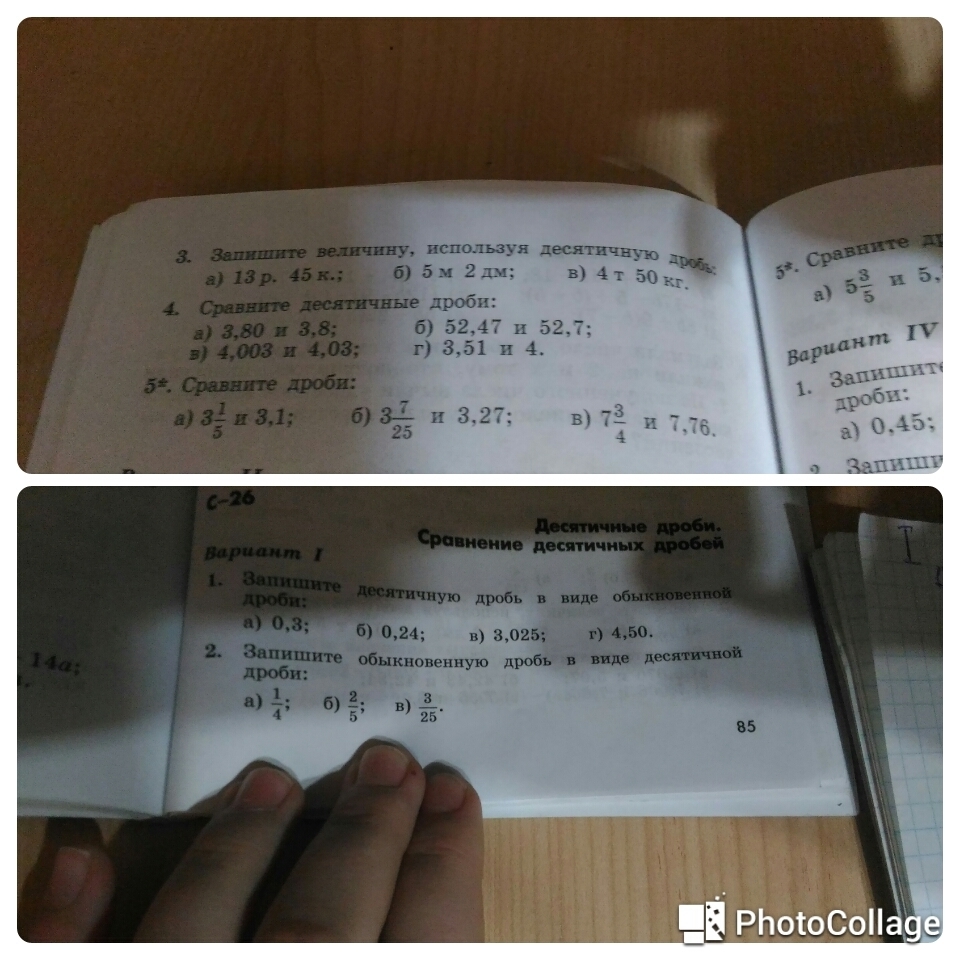 3. Запишите величину, используя десятичную дробь:
а) 13 р. 45 к.; б) 5 м 2 дм; в) 4 т 50 кг.
4. Сравните десятичные дроби:
а) 3,80 и 3,8; б) 52,47 и 52,7;
в) 4,003 и 4,03; г) 3,51 и 4.
5*. Сравните дроби:
а) 3 1/5 и 3,1; б) 3 7/25 и 3,27; в) 7 3/4 и 7,76.
5*. Сравните
а) 5 3/5 и 5,
Вариант IV
1. Запишите
дроби:
а) 0,45;
2. Запиши
14а;
С-26
Десятичные дроби.
Сравнение десятичных дробей
Вариант I
1. Запишите десятичную дробь в виде обыкновенной
дроби:
а) 0,3; б) 0,24; в) 3,025; г) 4,50.
2. Запишите обыкновенную дробь в виде десятичной
дроби:
а) 1/4; б) 2/5; в) 3/25.
85
I
PhotoCollage